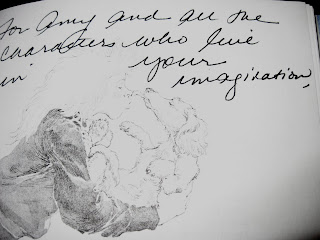 for Amy and all the
characters who live
in your
imagination,